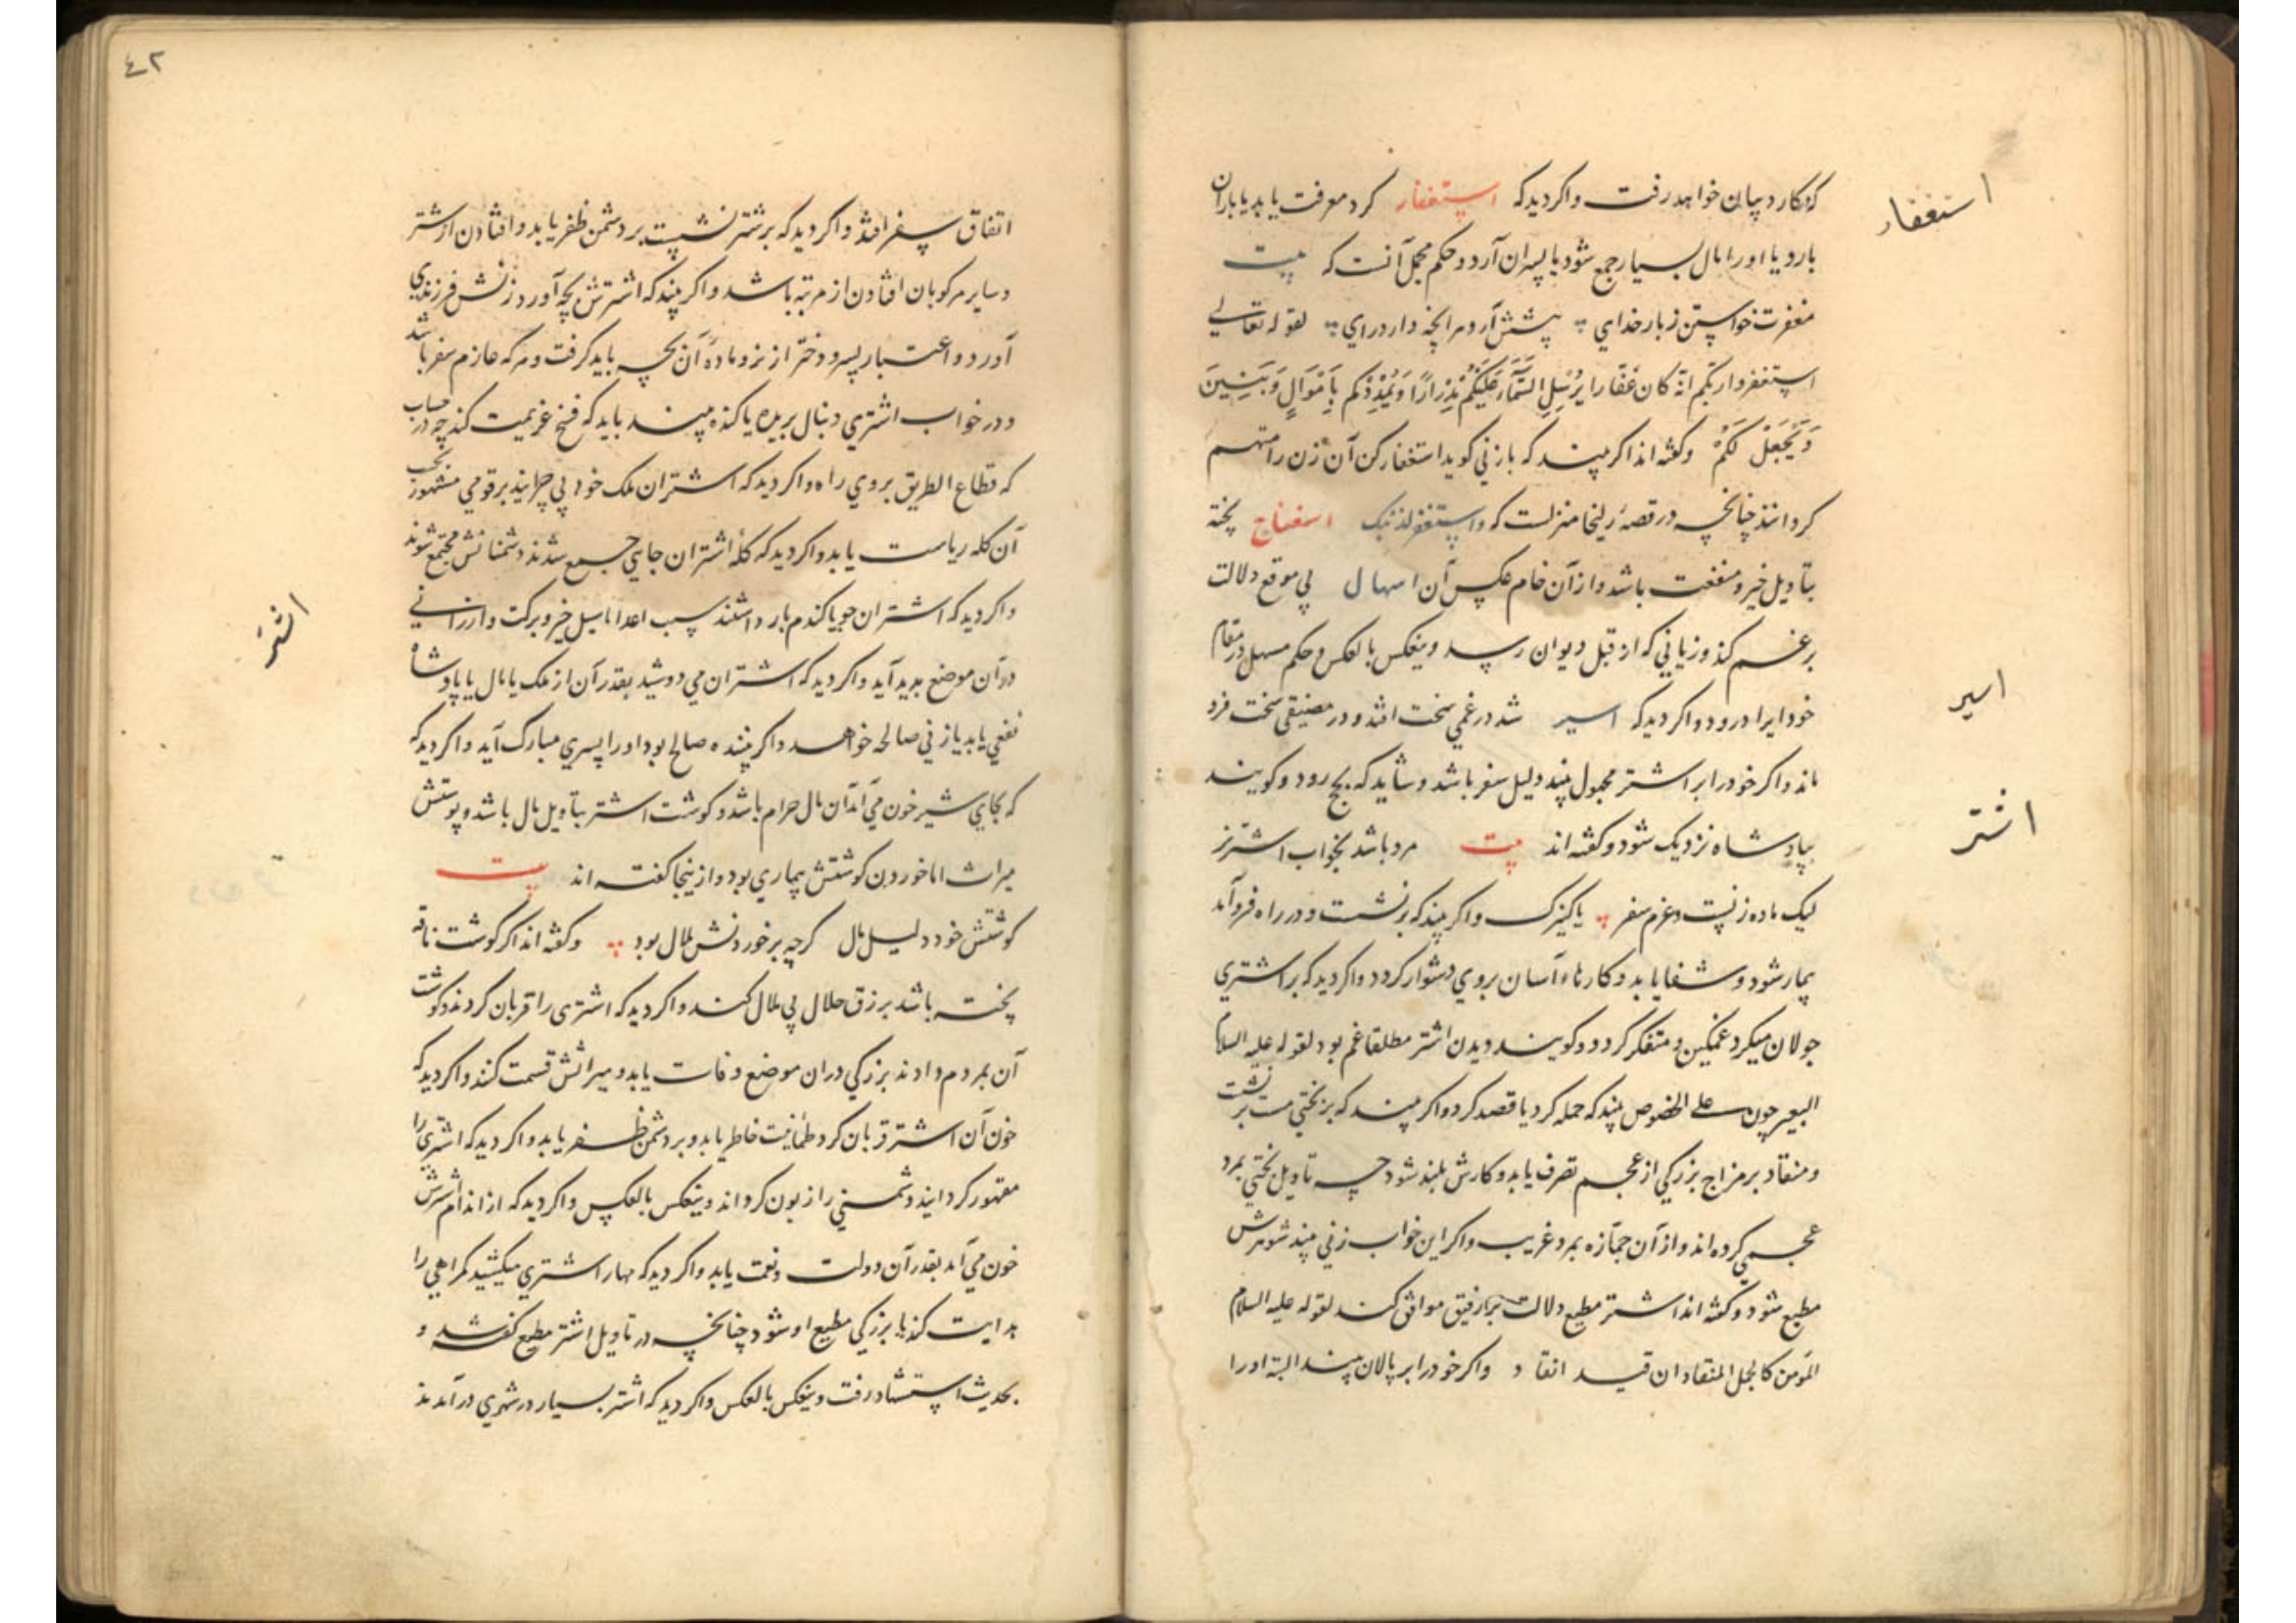 که بکار دیبان خواهد رفت واکر دید که استغفار کرد معرفت یابد یا باران
استغفار
بارد یا اورا مال بسیار جمع شود یا پسران آرد و حکم مجمل آنست که بیت
مغفرت خواستن زبار خدای پیشش آرد هرانچه دارد رای لقوله تعالی
استغفروا ربکم انه کان غفارا یرسل السماء علیکم مدرارا ویمددکم باموال وبنین
ویجعل لکم وکفته اند اکر بیند که با زنی کوید استغفار کن آن زن را متهم
کردانند چنانچه در قصه زلیخا منزلست که واستغفر لذنبک اسفناج پخته
بتاویل خیر و منفعت باشد و از آن خام عکس آن اسهال بی موقع دلالت
بر غم کند و زیانی که از قبل دیوان رسد وینعکس بالعکس و حکم مسهل در مقام
خود ایراد رود و اکر دید که اسیر شد در غمی سخت افتد و در مضیقی سخت فرو
اسیر
ماند و اکر خود را بر اشتر مجهول بیند دلیل سفر باشد و شاید که بحج رود و کویند
بپادشاه نزدیک شود و کفته اند بیت مرد باشد بخواب اشتر نر
اشتر
لیک ماده زنیست و عزم سفر یا کنیزک واکر بیند که برنشست و در راه فرو آمد
بیمار شود و شفا یابد و کارهاء آسان بروی دشوار کردد واکر دید که بر اشتری
جولان میکرد غمکین و متفکر کردد و کویند دیدن اشتر مطلقا غم بود لقوله علیه السلام
البعیر چون علی الخصوص بیند که حمله کرد یا قصد کرد واکر بیند که بر بختی مست برنشست
و منقاد بر مزاج بزرکی از عجم تصرف یابد و کارش بلند شود چه تاویل بختی بمرد
عجمی کرده اند و از آن جمازه بمرد غریب واکر این خواب زنی بیند شوهرش
مطیع شود و کفته اند اشتر مطیع دلالت بر رفیق موافق کند لقوله علیه السلام
المؤمن کالجمل المنقاد ان قید انقاد واکر خود را بر پالان بیند البته او را
٤٢
اتفاق سفر افتد واکر دید که بر شتر نشست بر دشمن ظفر یابد و افتادن از شتر
و سایر مرکوبان افتادن از مرتبه باشد واکر بیند که اشترش بچه آورد زنش فرزندی
آورد و اعتبار پسر و دختر از نر و ماده آن بچه باید کرفت و هر که عازم سفر باشد
و در خواب اشتری دنبال بریده یا کنده بیند باید که فسخ عزیمت کند چه در حساب
که قطاع الطریق بروی راه واکر دید که اشتران ملک خود بی چرانید بر قومی مشهور بحسب
آن کله ریاست یابد واکر دید که کله اشتران جایی جمع شدند دشمنانش مجتمع شوند
واکر دید که اشتران جو یا کندم بار داشتند سبب اعدا یا سیل خیر و برکت و ارزانی
اشتر
در آن موضع پدید آید واکر دید که اشتران می دوشید بقدر آن از ملک یا مال یا پادشاه
نفعی یابد یا زنی صالحه خواهد و اکر بیننده صالح بود او را پسری مبارک آید واکر دید که
که بجای شیر خون می آمد آن مال حرام باشد و کوشت اشتر بتاویل مال باشد و پوستش
میراث اما خوردن کوشتش بیماری بود و از ینجا کفته اند بیت
کوشتش خود دلیل مال کرچه بر خوردنش ملال بود وکفته اند اکر کوشت ناقه
پخته باشد برزق حلال بی ملال کند واکر دید که اشتری را قربان کردند و کوشت
آن بمردم دادند بزرکی دران موضع وفات یابد و میراثش قسمت کنند واکر دید که
خون آن اشتر قربان کرد طمانیت خاطر یابد و بر دشمن ظفر یابد واکر دید که اشتری را
مقهور کردانید دشمنی را زبون کرداند وینعکس بالعکس واکر دید که از اندام اشترش
خون می آمد بقدر آن دولت و نعمت یابد واکر دید که مهار اشتری میکشید کمراهی را
هدایت کند یا بزرکی مطیع او شود چنانچه در تاویل اشتر مطیع کفته شد و
بحدیث استشهاد رفت وینعکس بالعکس واکر دید که اشتر بسیار در شهری در آمدند